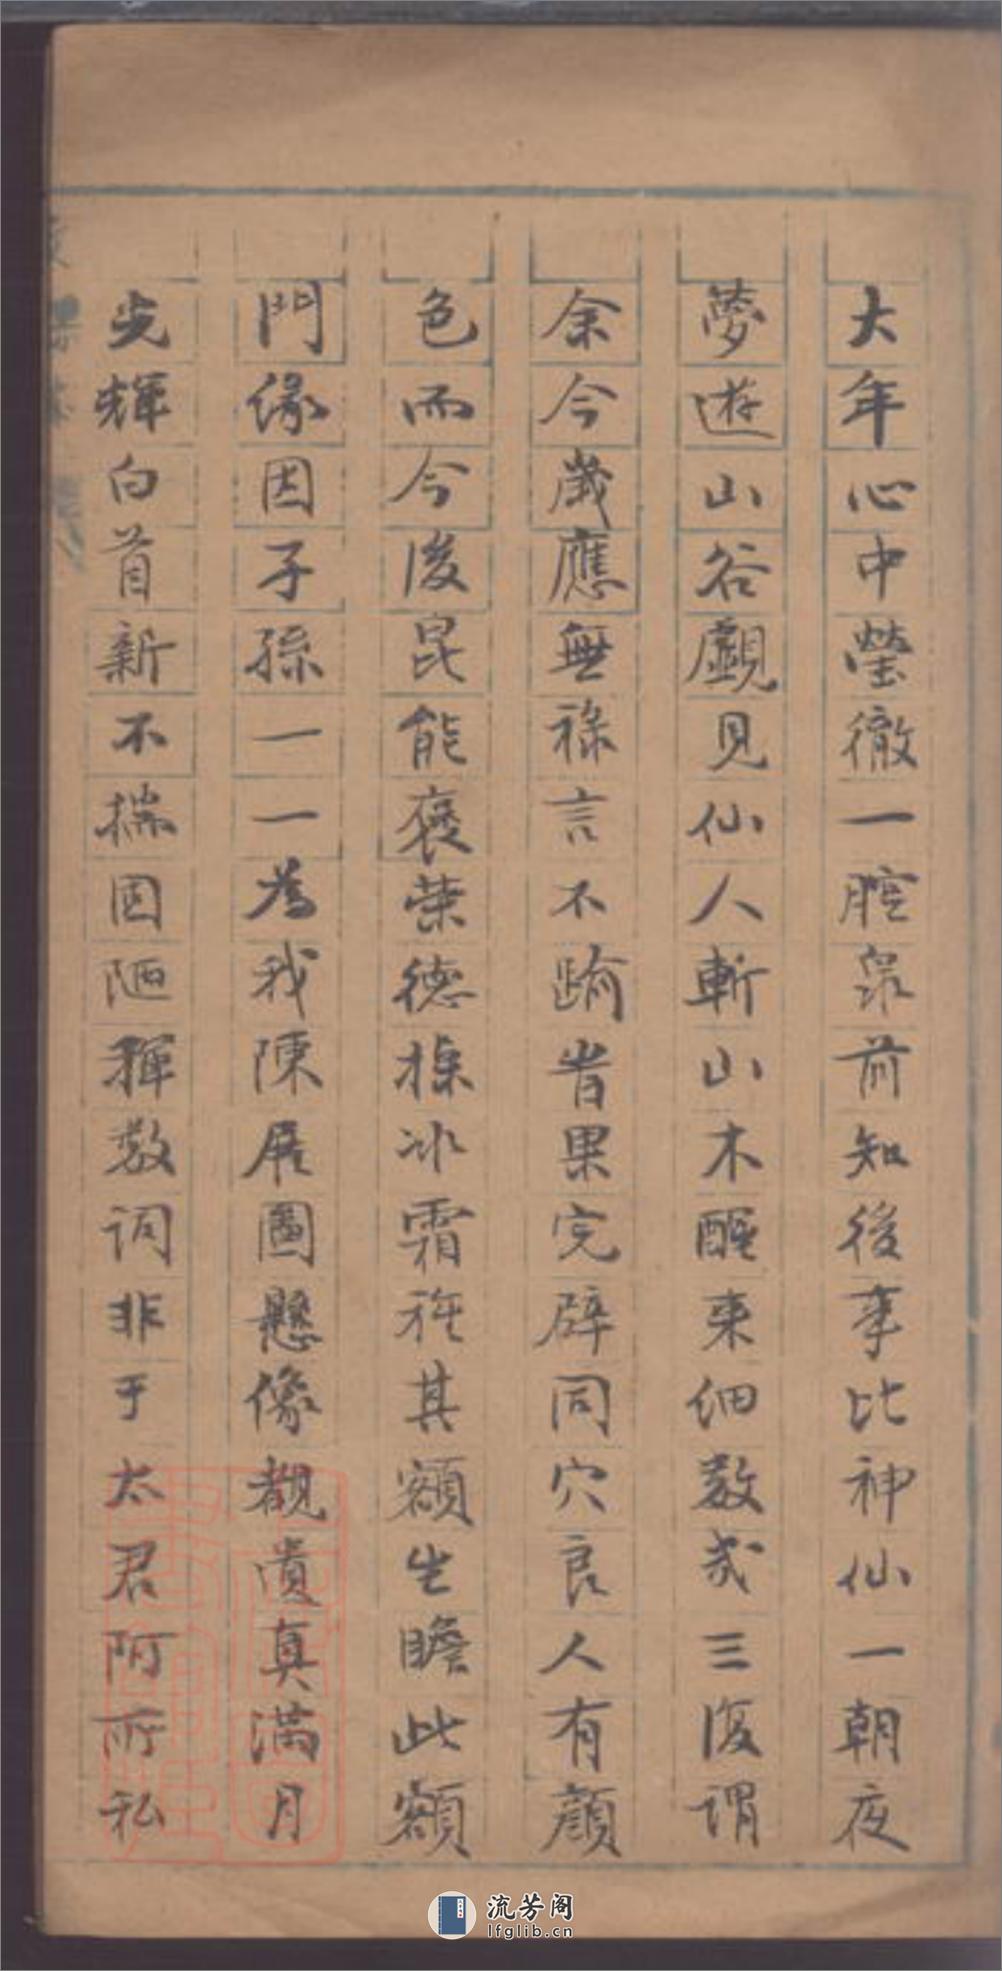 大年心中瑩徹一腔泉前知後事比神仙一朝夜
夢遊山谷覷見仙人斬山木醒来細数或三復謂
余今歲應無祿言不踰眥果完辟同穴良人有顔
色而今後昆能褒荣德操冰霜旌其額生瞻此額
門缘因子孫一一為我陳展圖懸像觀遺真滿月
光輝白首新不揣固陋揮数词非于太君阿所私
流芳阁
lfglib.cn